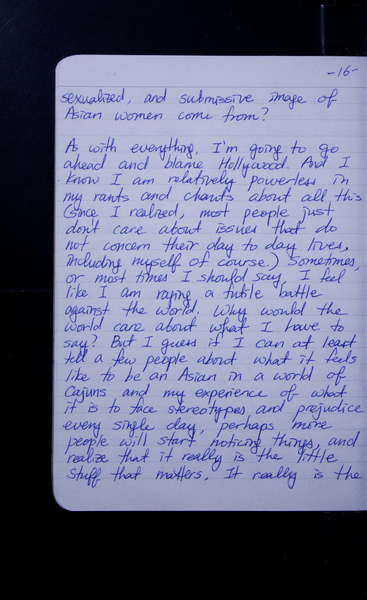 -16-
sexualized, and submissive image of
Asian women come from?
As with everything, I'm going to go
ahead and blame Hollywood. And I
know I am relatively powerless in
my rants and chants about all this
(since I realized, most people just
don't care about issues that do
not concern their day to day lives,
including myself of course.) Sometimes,
or most times I should say, I feel
like I am raging a futile battle
against the world. Why would the
world care about what I have to
say? But I guess if I can at least
tell a few people about what it feels
like to be an Asian in a world of
Cajuns and my experience of what
it is to face stereotypes and prejudice
every single day, perhaps more
people will start noticing things, and
realize that it really is the little
stuff that matters. It really is the